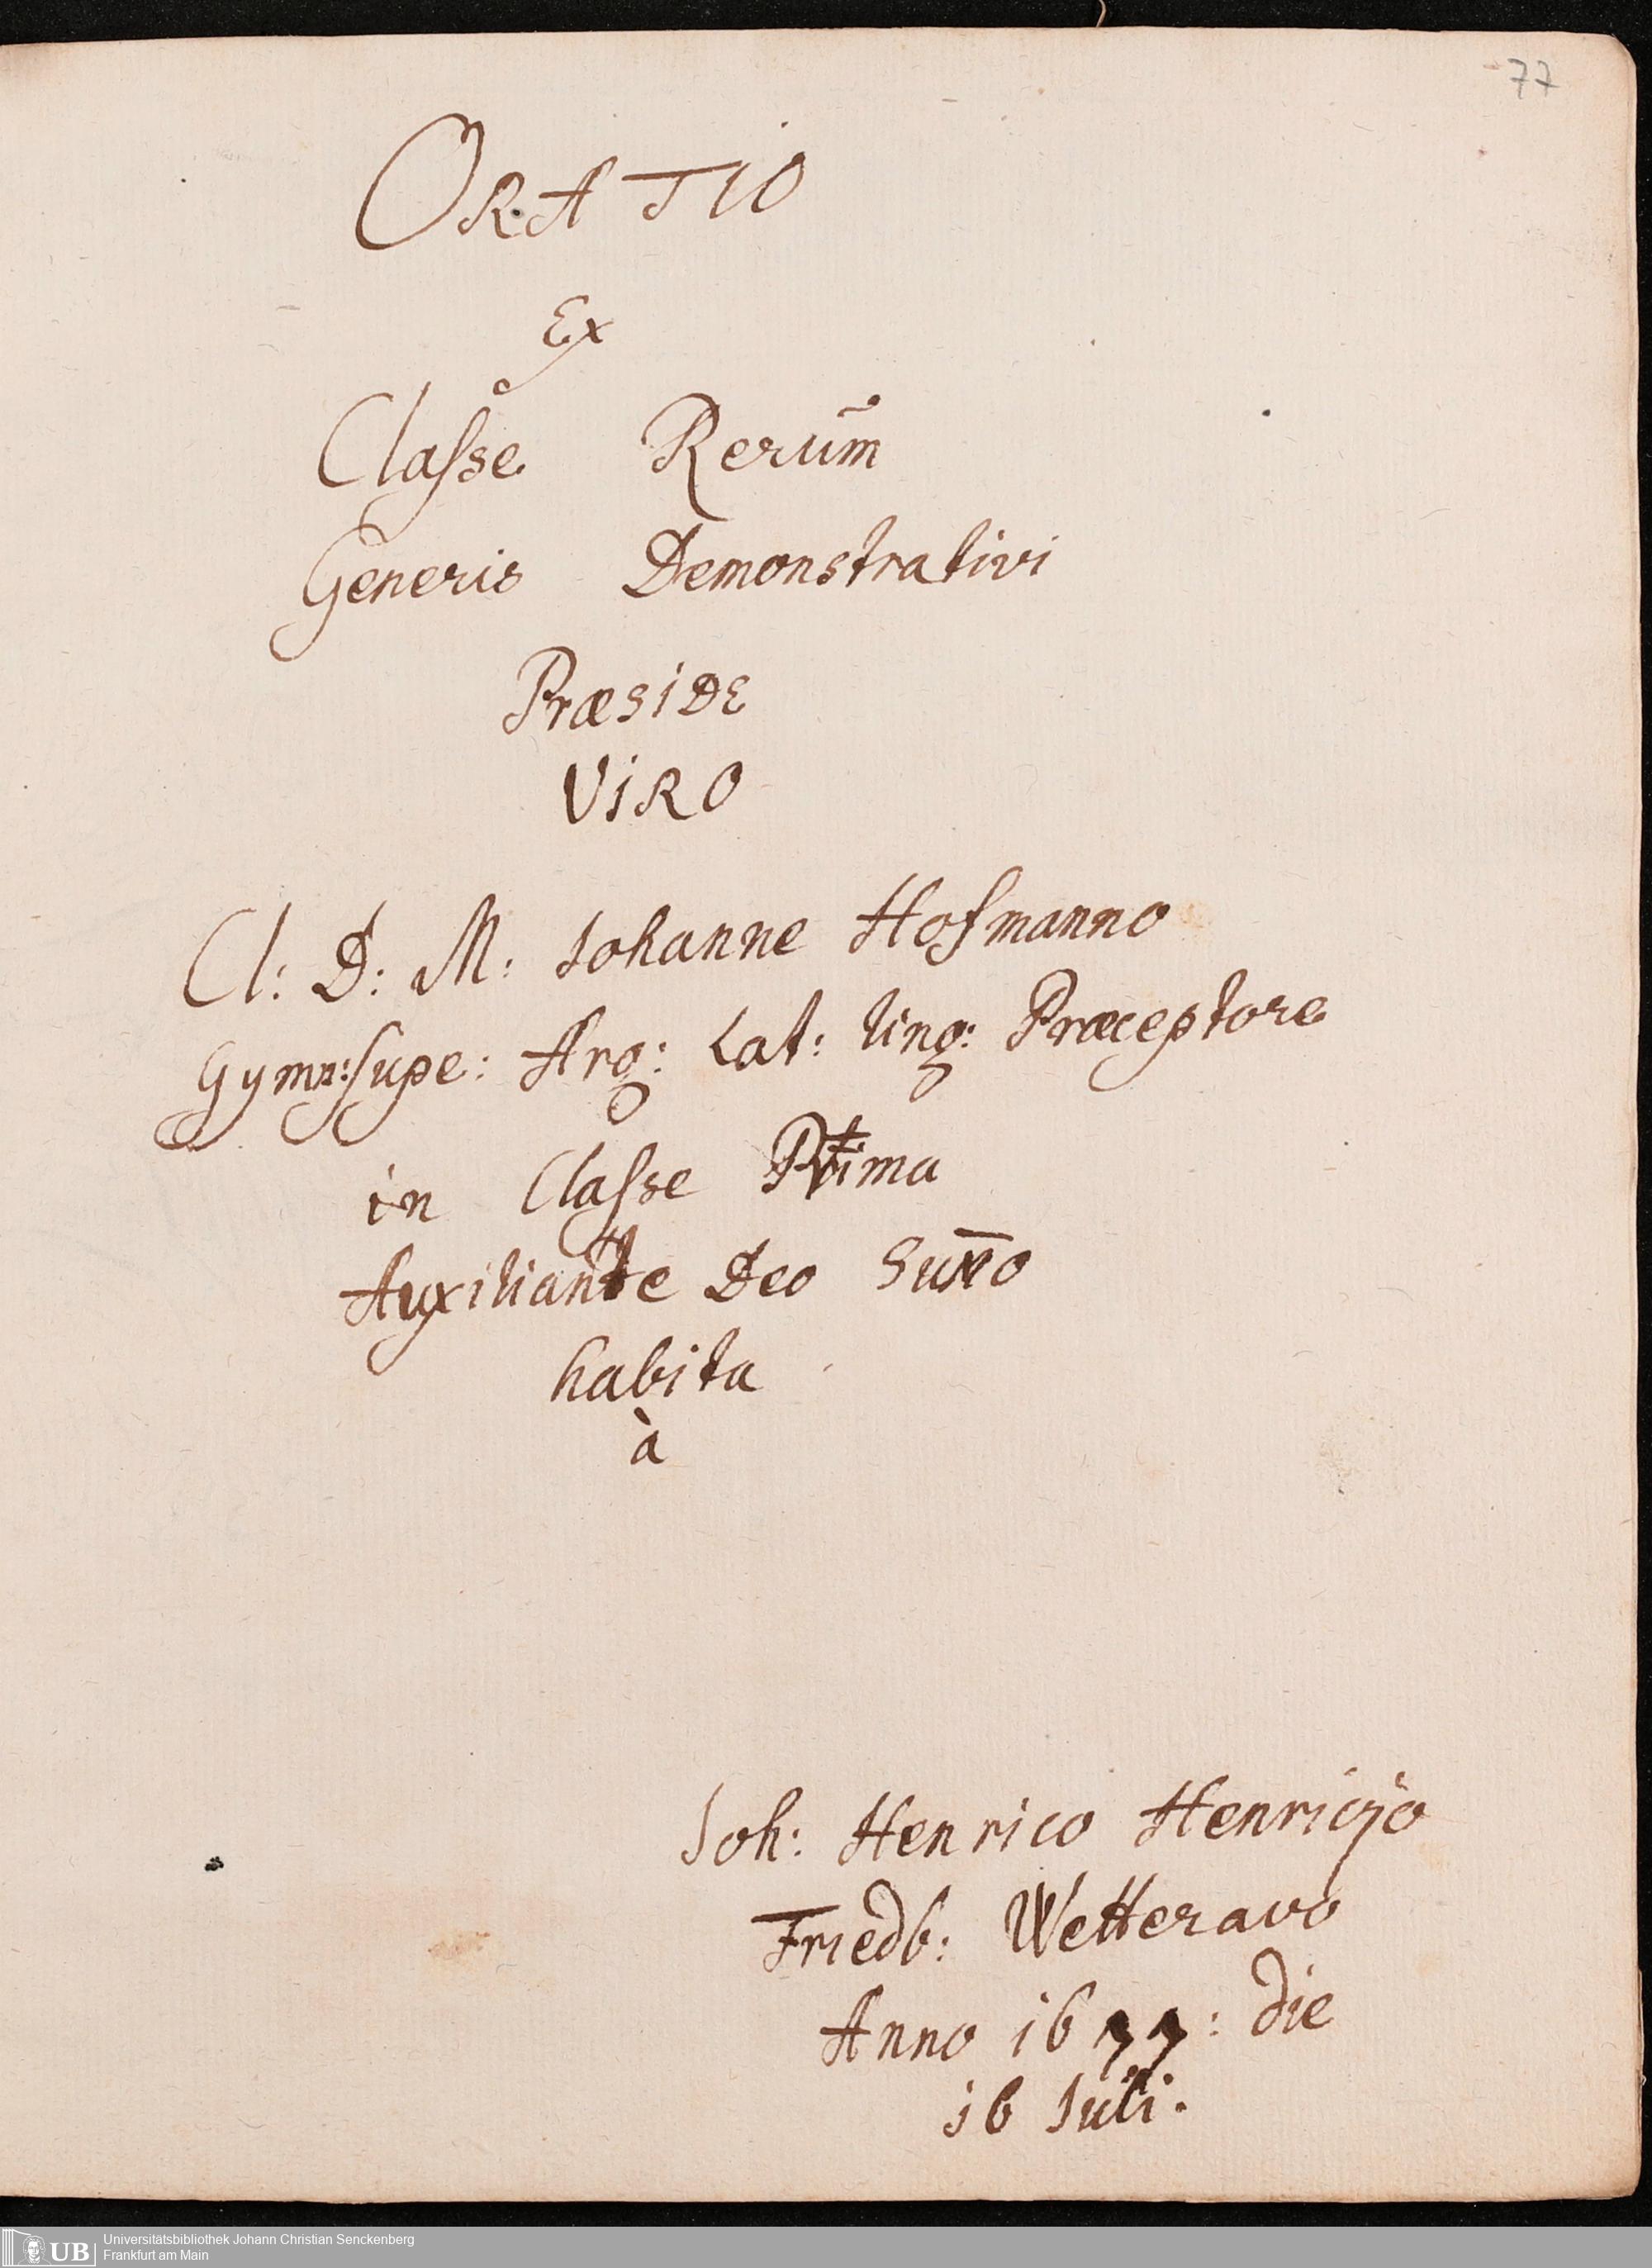 77
ORATIO
Ex
Classe Rerum̄
Generis Demonstrativi
PræsiDE
ViRO
Cl: D: M: Iohanne Hofmanno
Gymn: supe: Arg: Lat: ling: Præceptore
in Classe Prima
Auxiliante Deo Sum̄o
habita
à
Ioh: Henrico Henricjo
Friedb: Wetteravo
Anno 1677: die
16 Iuli.
UB Universitätsbibliothek Johann Christian Senckenberg
Frankfurt am Main